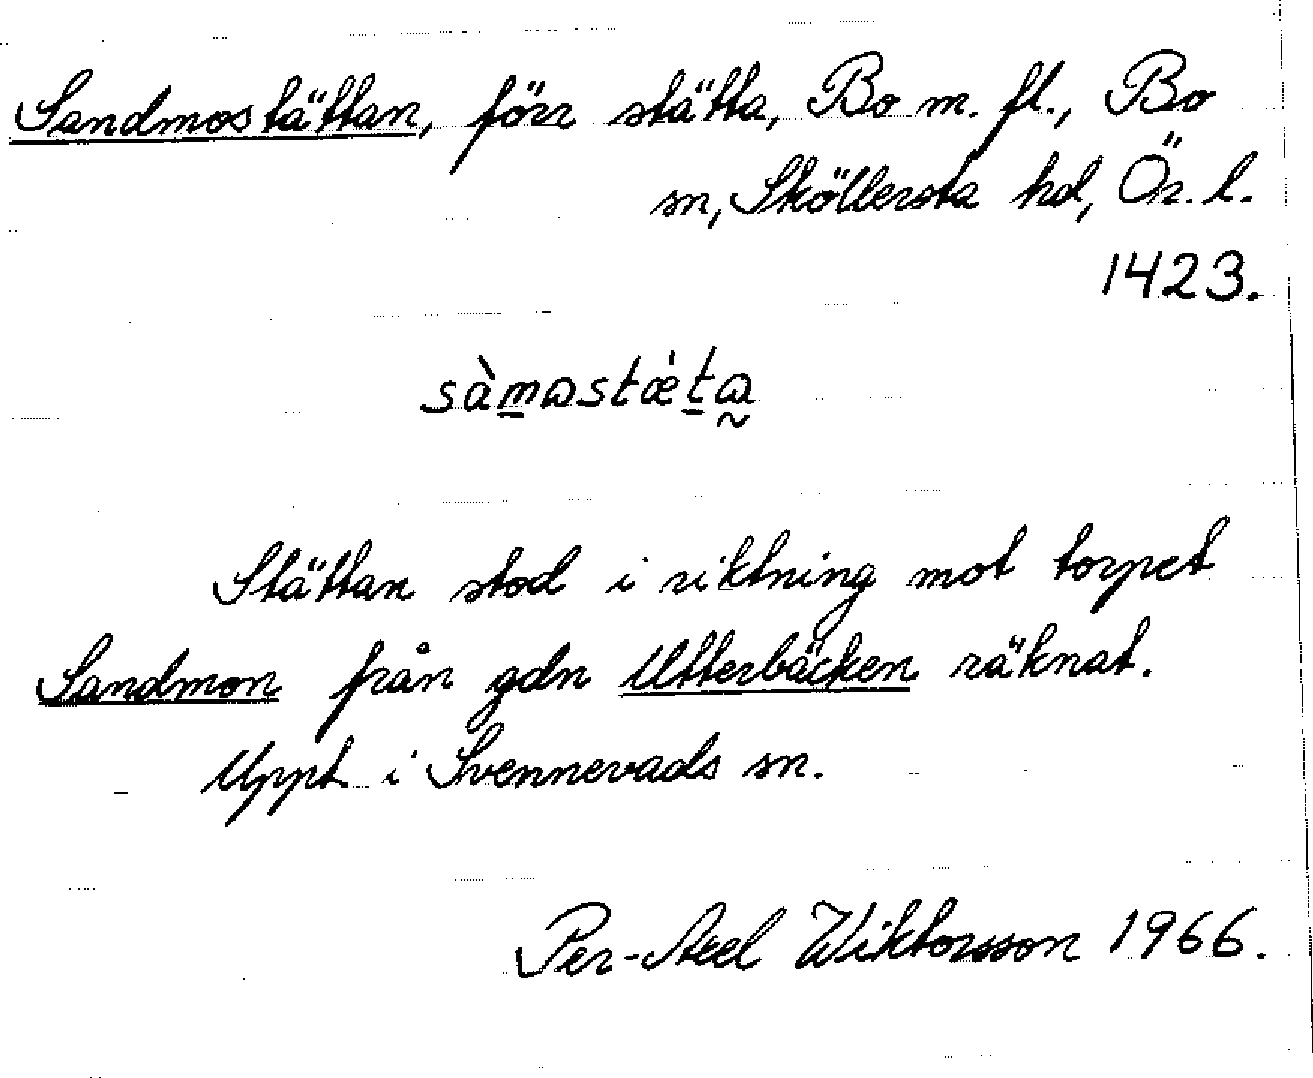 Sandmostättan, förr stätta, Bo m. fl., Bo
sn, Sköllersta hd, Ör. l.
1423.
sàm̠ɷstǽt̠ɷ̰
Stättan stod i riktning mot torpet
Sandmon från gdn Utterbäcken räknat.
Uppt. i Svennevads sn.
Per-Axel Wiktorsson 1966.